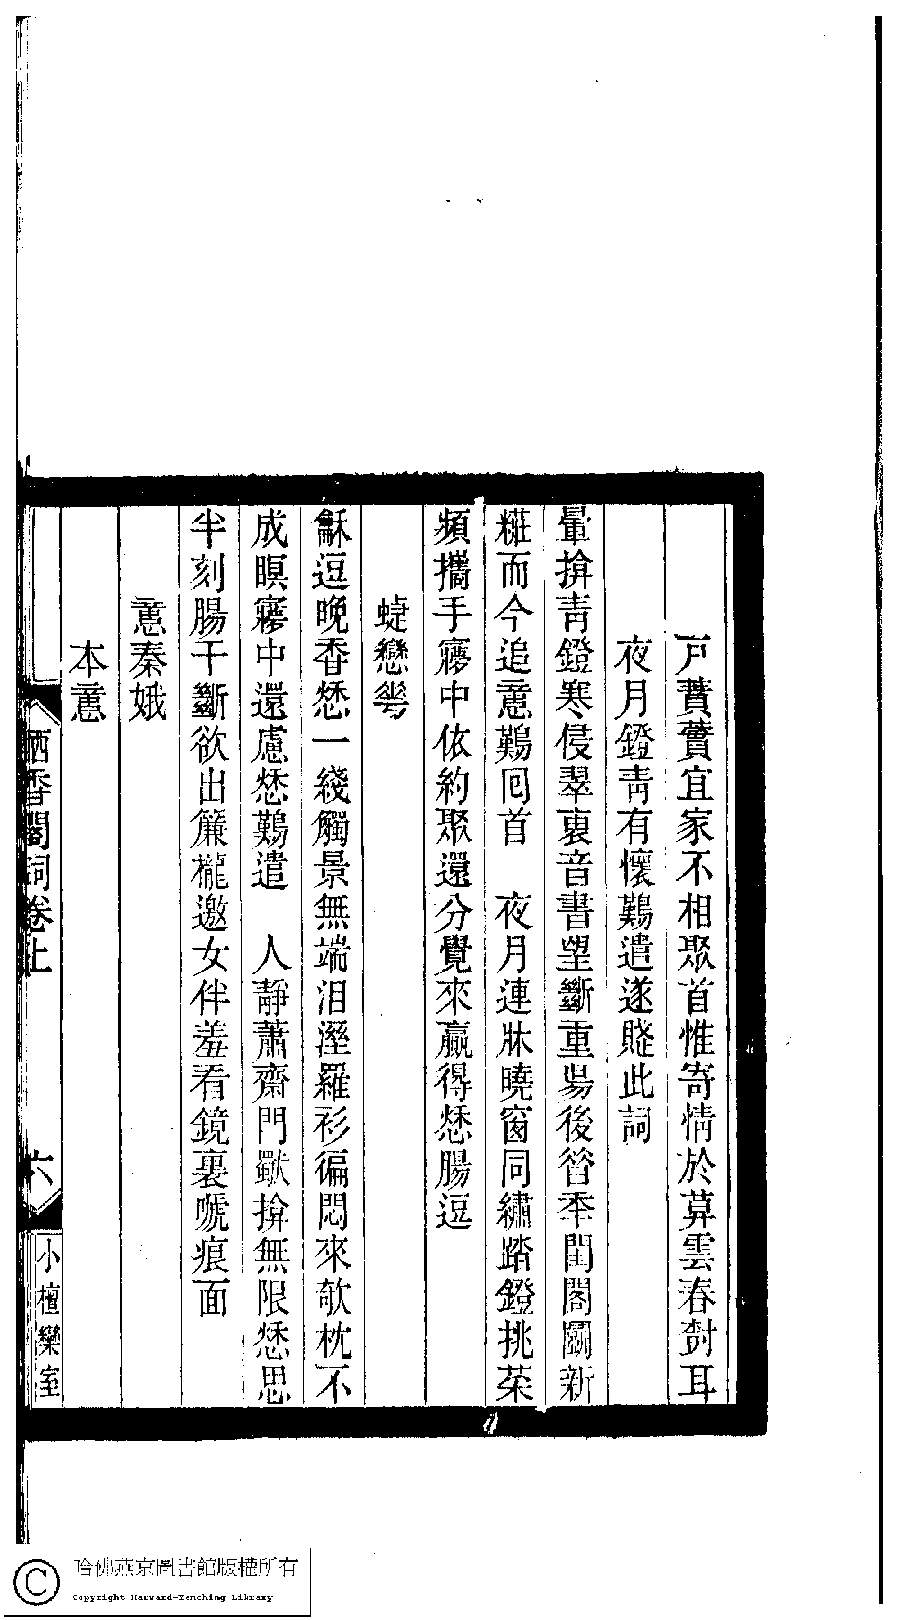 戸蕡蕡宜家不相聚首惟寄情於莫雲春尌耳
夜月鐙青有懷鷬遣遂賤此詞
暈揜青鐙寒侵翠裏音書朢斷重昜後昝秊閨閣鬭新
糚而今追憶鷬囘首　夜月連牀曉窗同繡踏鐙挑菜
頻攜手㝱中依約聚還分覺來贏得愁腸逗
蜨戀蕚
龢逗晚香愁一綫觸景無端泪溼羅衫徧悶來欹枕不
成瞑㝱中還慮愁鷬遣　人靜蕭齋門獸揜無限愁思
半刻腸千斷欲出簾櫳邀女伴羞看鏡裏嗁痕面
憶秦娥
本意
栖香閣詞卷上
六
小檀欒室
哈佛燕京圖書館版權所有
Copyright Harvard-Yenching Library